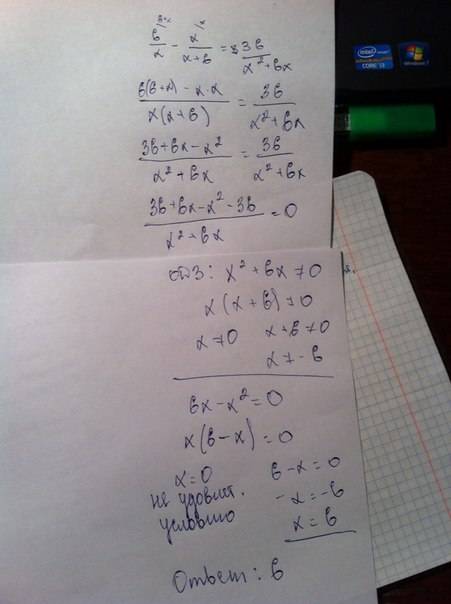 6/x - x/(x+6) = 36/(x²+6x)
(6(6+x) - x·x)/(x(x+6)) = 36/(x²+6x)
(36+6x-x²)/(x²+6x) = 36/(x²+6x)
(36+6x-x²-36)/(x²+6x) = 0
ОДЗ: x²+6x≠0
x(x+6)≠0
x≠0 x+6≠0
x≠-6
6x-x²=0
x(6-x)=0
x=0 6-x=0
не удовлет. -x=-6
условию x=6
Ответ: 6
intel
CORE i3
Windows 7